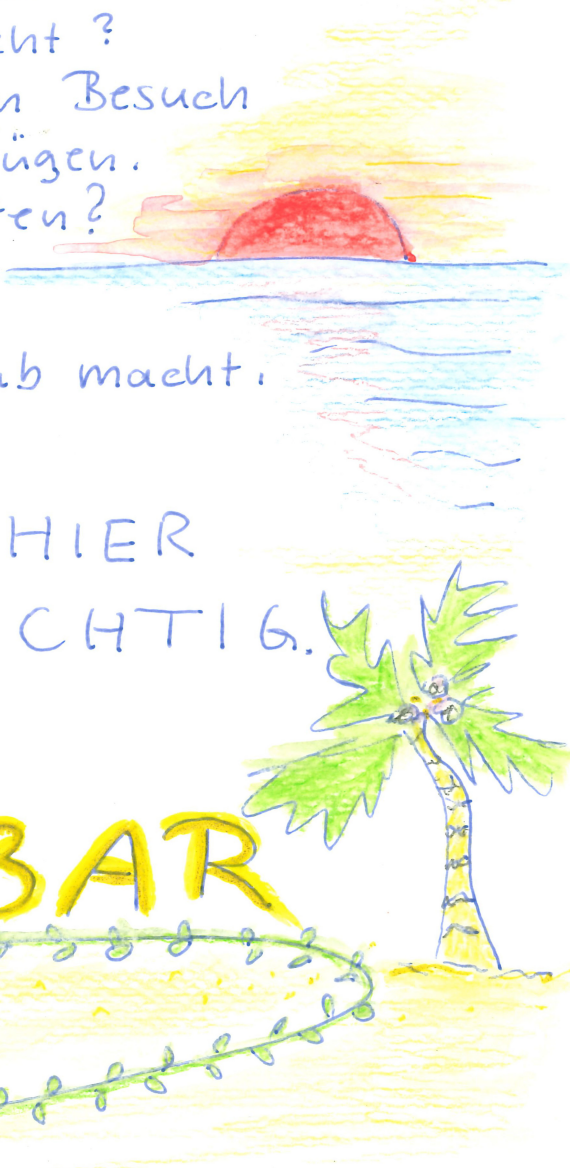 cht ?
n Besuch
ügen.
en?
ub macht.
HIER
CHTIG.
BAR